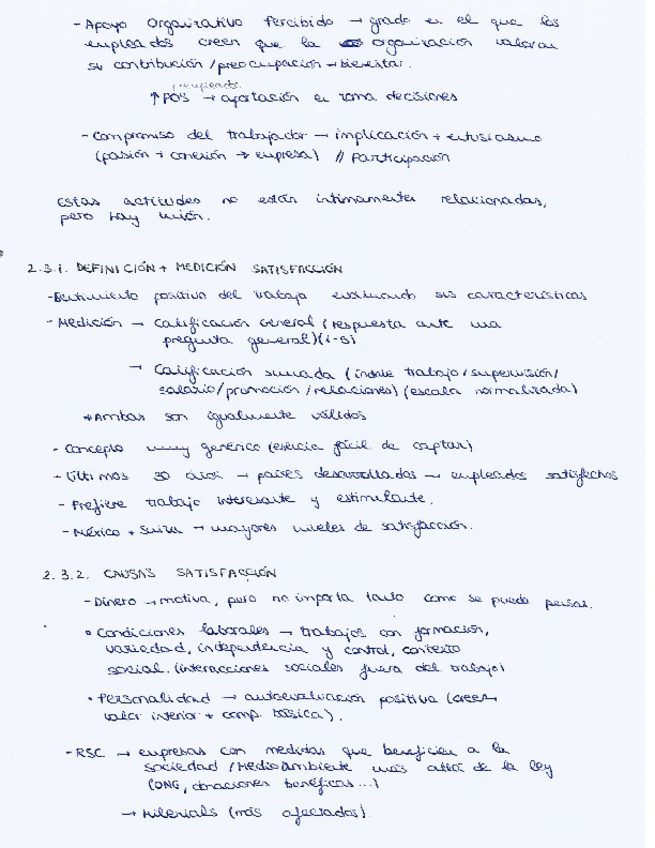 - Apoyo Organizativo Percibido → grado en el que los
empleados creen que la organización valoran
su contribución / preocupación → bienestar.
↑ POS → aportación en toma decisiones
- Compromiso del trabajador → implicación + entusiasmo
(pasión + conexión → empresa) // Participación
Estas actitudes no están íntimamente relacionadas,
pero hay unión.
2.3.1. DEFINICIÓN + MEDICIÓN SATISFACCIÓN
- Sentimiento positivo del trabajo evaluando sus características
- Medición → Calificación General (respuesta ante una
pregunta general) (1-5)
→ Calificación sumada (índole trabajo / supervisión /
salario / promoción / relaciones) (escala normalizada)
* Ambas son igualmente válidos
- Concepto muy genérico (esencia fácil de captar)
- Últimos 30 años → países desarrollados → empleados satisfechos
- Prefiere trabajo interesante y estimulante.
- México + Suiza → mayores niveles de satisfacción.
2.3.2. CAUSAS SATISFACCIÓN
- Dinero → motiva, pero no importa tanto como se puede pensar.
• Condiciones laborales → trabajos con formación,
variedad, independencia y control, contexto
social. (interacciones sociales fuera del trabajo)
• Personalidad → autoevaluación positiva (creen
valor interior + comp. básica).
- RSC → empresas con medidas que beneficien a la
sociedad / Medio Ambiente más allá de la ley
(ONG, donaciones benéficas...)
→ Milenials (más afectados)